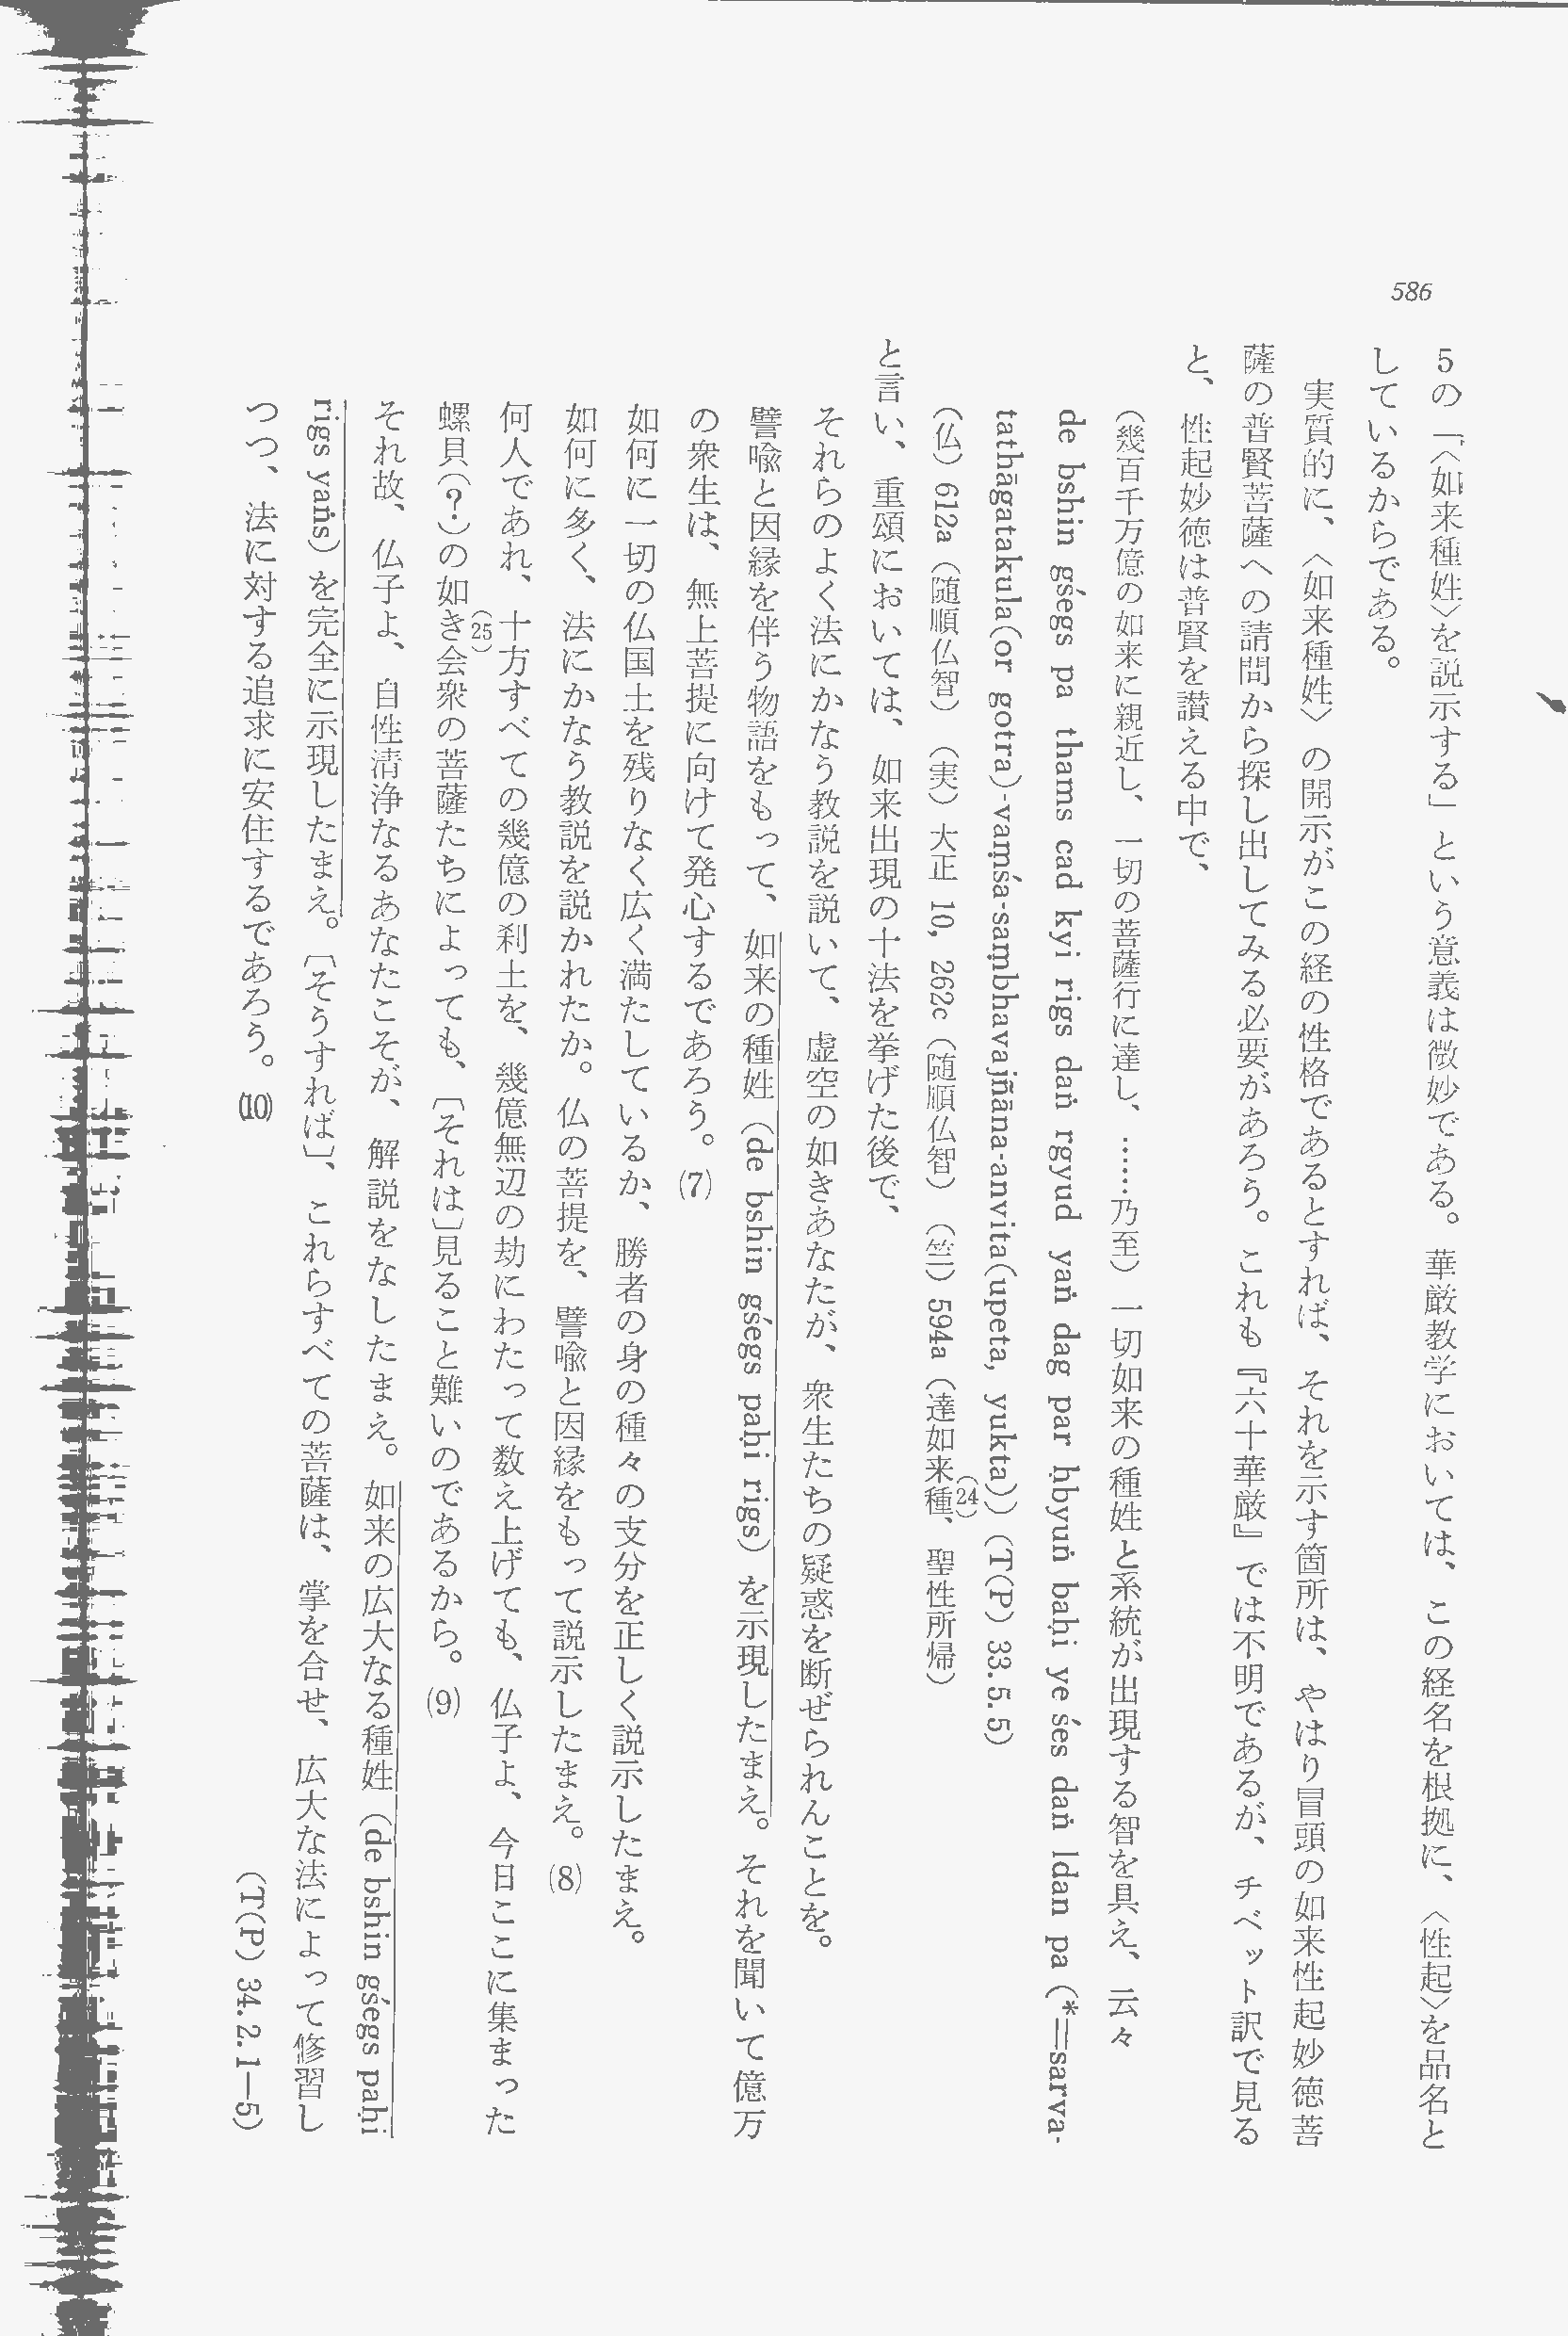 586
5の「〈如来種姓〉を説示する」という意義は微妙である。華厳教学においては、この経名を根拠に、〈性起〉を品名と
しているからである。
実質的に、〈如来種姓〉の開示がこの経の性格であるとすれば、それを示す箇所は、やはり冒頭の如来性起妙徳菩
薩の普賢菩薩への請問から探し出してみる必要があろう。これも『六十華厳』では不明であるが、チベット訳で見る
と、性起妙徳は普賢を讃える中で、
(幾百千万億の如来に親近し、一切の菩薩行に達し、……乃至)一切如来の種姓と系統が出現する智を具え、云々
de bshin gśegs pa thams cad kyi rigs daṅ rgyud yaṅ dag par ḥbyuṅ baḥi ye śes daṅ ldan pa (*=sarva-
tathāgatakula(or gotra)-vaṃśa-saṃbhavajñāna-anvita(upeta, yukta)) (T(P) 33.5.5)
(仏) 612a (随順仏智) (実) 大正 10, 262c (随順仏智) (竺) 594a (達如来種、聖性所帰)(24)
と言い、重頌においては、如来出現の十法を挙げた後で、
それらのよく法にかなう教説を説いて、虚空の如きあなたが、衆生たちの疑惑を断ぜられんことを。
譬喩と因縁を伴う物語をもって、如来の種姓(de bshin gśegs paḥi rigs)を示現したまえ。それを聞いて億万
の衆生は、無上菩提に向けて発心するであろう。(7)
如何に一切の仏国土を残りなく広く満たしているか、勝者の身の種々の支分を正しく説示したまえ。
如何に多く、法にかなう教説を説かれたか。仏の菩提を、譬喩と因縁をもって説示したまえ。(8)
何人であれ、十方すべての幾億の刹土を、幾億無辺の劫にわたって数え上げても、仏子よ、今日ここに集まった
螺貝(?)の如き(25)会衆の菩薩たちによっても、[それは]見ること難いのであるから。(9)
それ故、仏子よ、自性清浄なるあなたこそが、解説をなしたまえ。如来の広大なる種姓(de bshin gśegs paḥi
rigs yaṅs)を完全に示現したまえ。[そうすれば]、これらすべての菩薩は、掌を合せ、広大な法によって修習し
つつ、法に対する追求に安住するであろう。(10)
(T(P) 34.2.1—5)